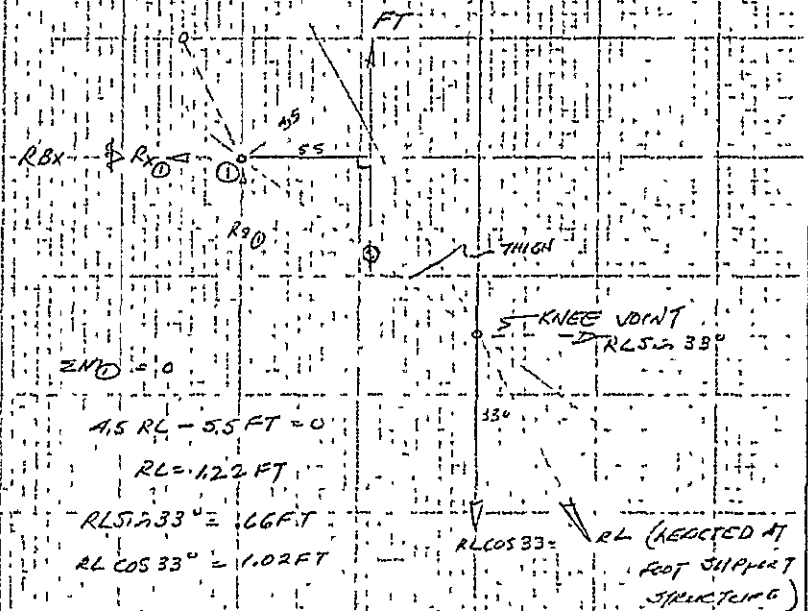 FT
4.5
RBX
RX①
①
5.5
RB①
②
THIGH
KNEE JOINT
RL Sin 33°
ΣM① = 0
33°
4.5 RL - 5.5 FT = 0
RL = 1.22 FT
RL Sin 33° = .66 FT
RL COS 33° = 1.02 FT
RL COS 33°
RL (REACTED AT
FOOT SUPPORT
STRUCTURE)